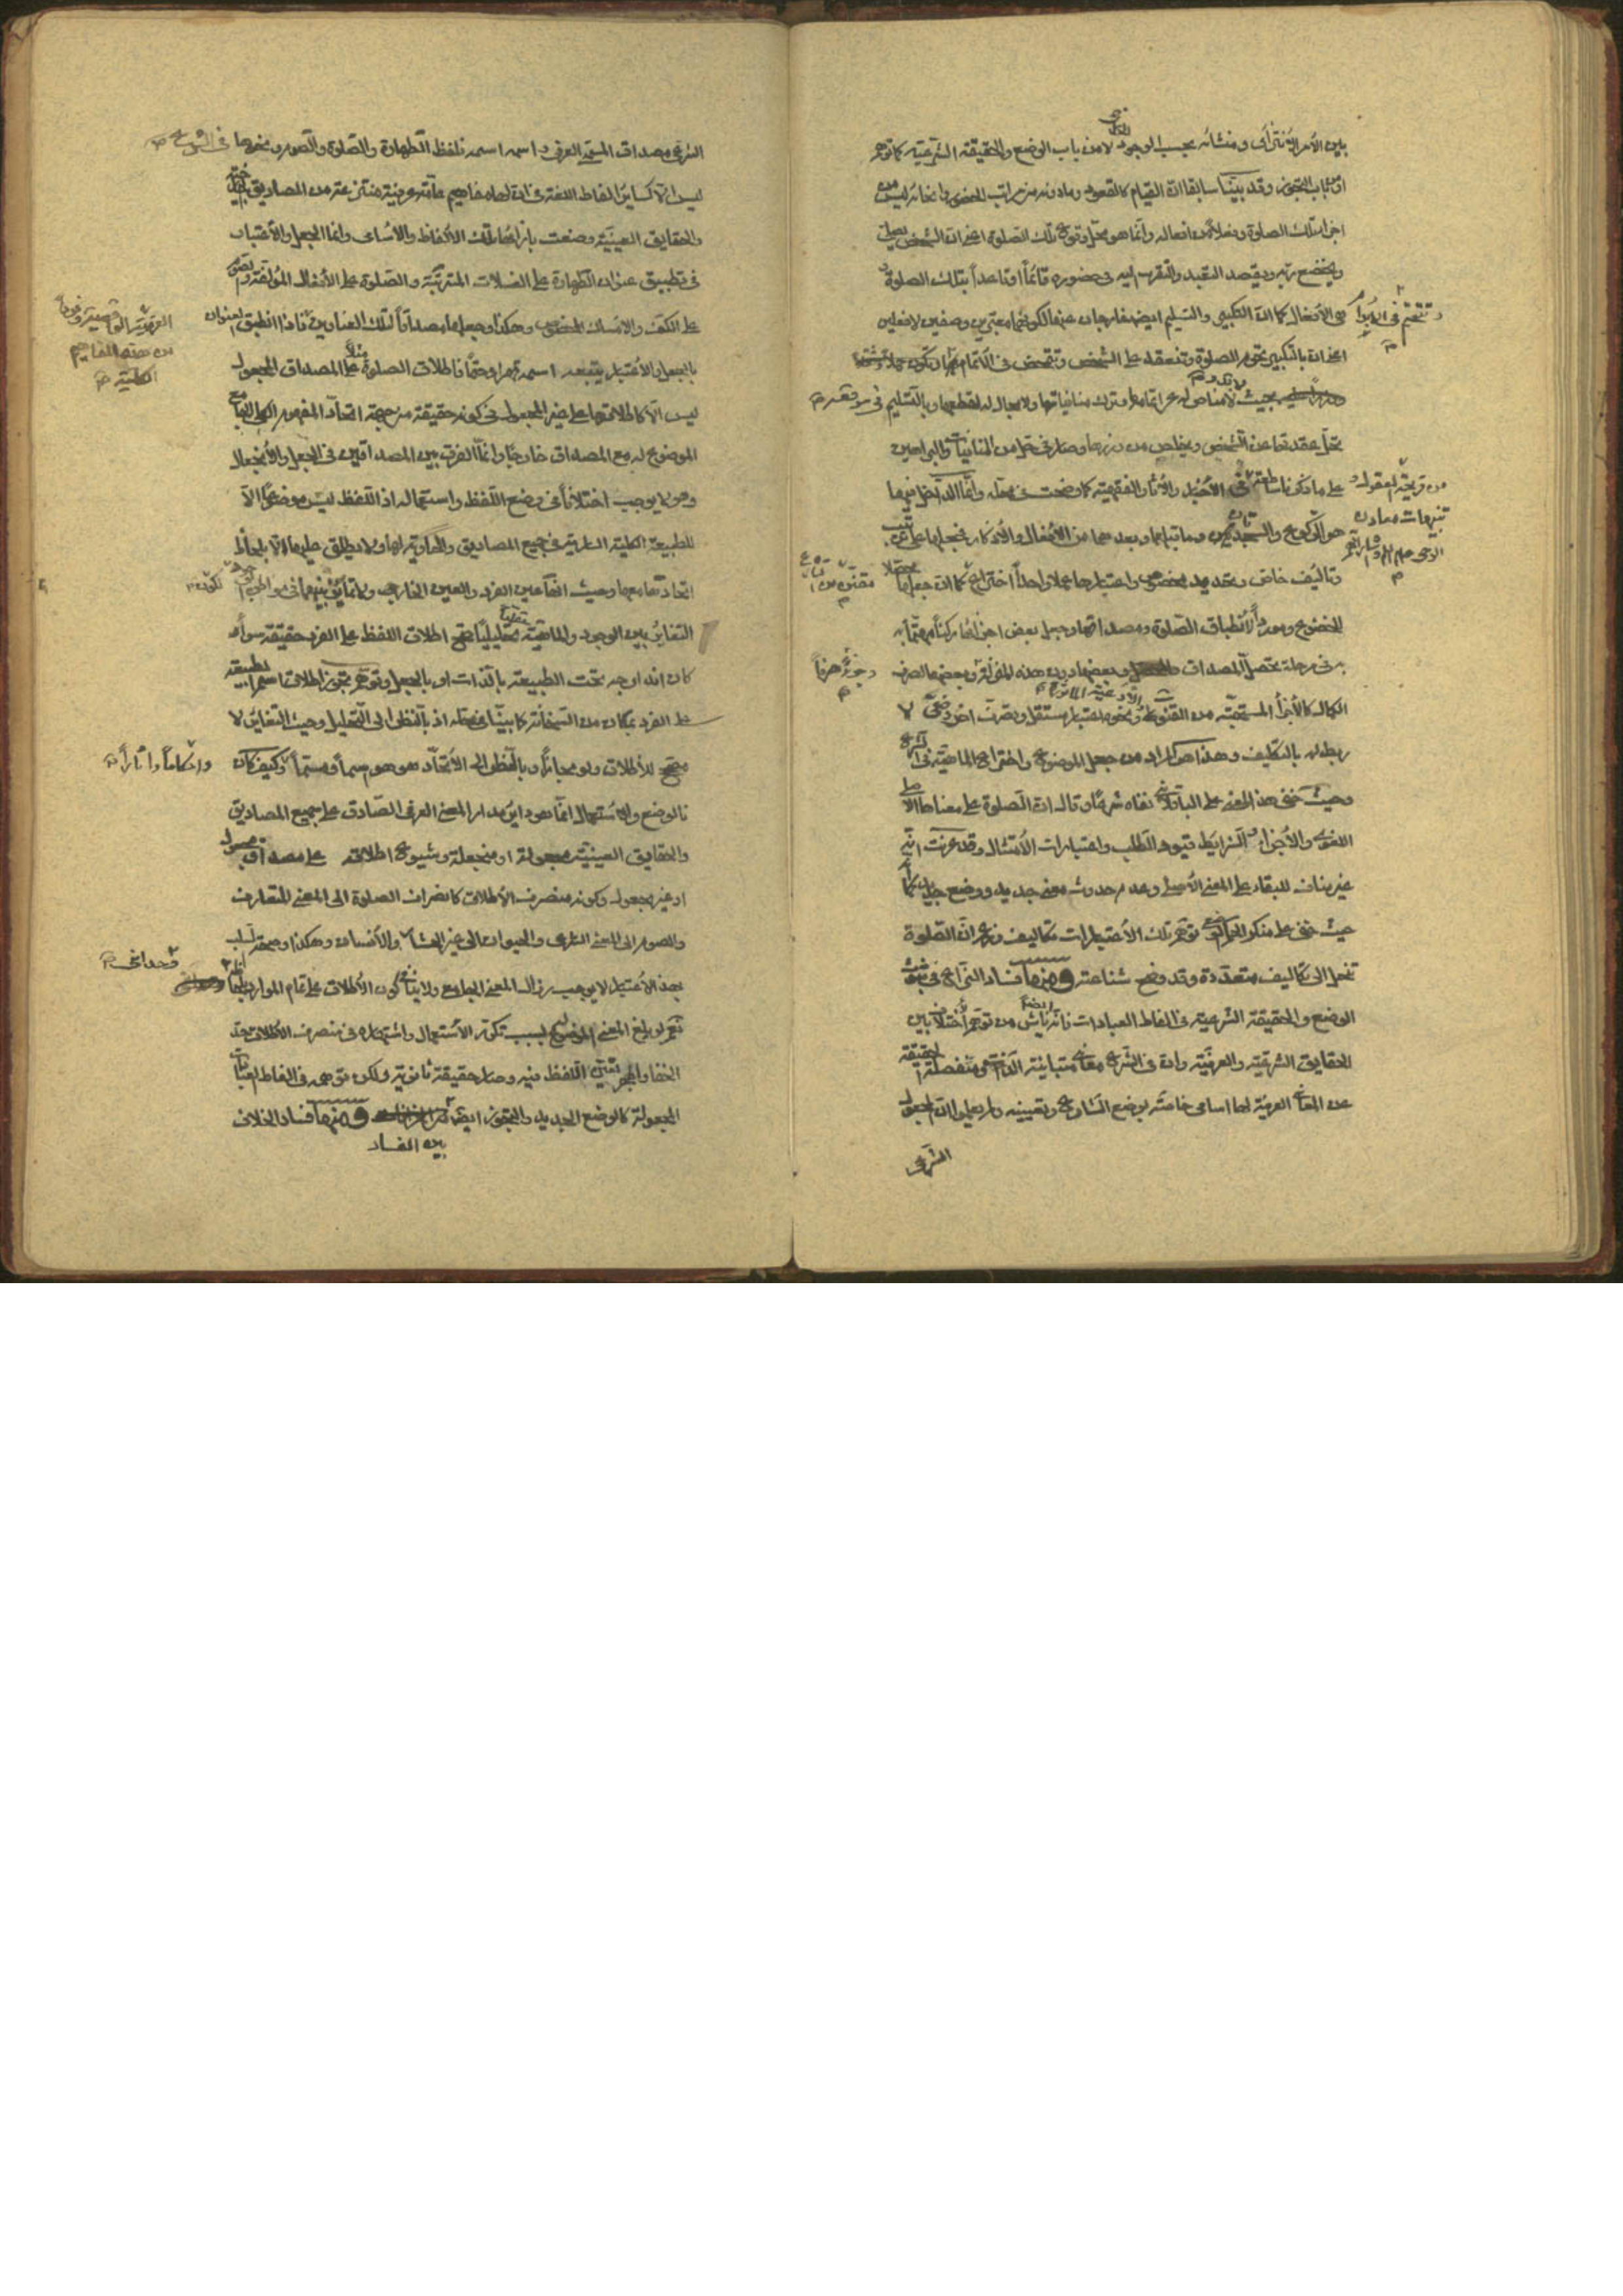 بين الأمر الانتزاعى ومنشائه بحسب الوجود لا من باب الوضع والحقيقة الشرعية كما توهم
او من باب التجوز وقد بيّنا سابقا ان القيام كالقعود وما دونه من مراتب الخضوع وانحائه ليس من
اجزاء تلك الصلوة وفعلا من افعاله وانما هو محل وقوع تلك الصلوة اعنى ان الشخص يصلى
ويخضع ربه ويقصد التعبد والتقرب اليه فى حضوره قائماً او قاعداً بتلك الصلوة
الأفعال كما ان التكبير والتسليم ايضا خارجان عنها لكونهما معتبرين وصفين لا فعلين
اعنى ان بالتكبير تحرم الصلوة وتنعقد على الشخص
بحيث لا مناص له عن اتمامها وترك منافياتها ولا مجال له لقطعها وبالتسليم فى موقعه
تحل عقدتها عن الشخص ويخلص من وزرها وصار فى حل من المنافيات والبراهين
على ما ذكرنا ساطعة من الأخبار والآثار الفقهية كما وضحت فى محله وانما الدخيل فيها
هو الركوع والسجدتان وما قبلهما وبعدهما من الأفعال والأذكار فجعلها على ترتيب
وتأليف خاص وتحديد مخصوص واعتبارها عملا واحداً اختراع كما ان جعلها محققا
للخضوع وموردا لانطباق الصلوة ومصداقها وجعل بعض اجزائها ركناً مهتماً به
فى مرحلة تحصل المصداق وبعضها دون هذه المنزلة وبعضها لصرف
الكمال كالأجزاء المستحبة من القنوت ونحوه اعتبار مستقل وتصرف اخر وضعى لا
ربط له بالتكليف وهذا هو المراد من جعل الموضوع واختراع الماهية فى الشرع
وحيث خفى هذا المعنى على الباقلانى نفاه شرعاً وقال ان الصلوة على معناها الأصلى
اللغوى والأجزاء والشرايط قيود الطلب واعتبارات الأمتثال وقد عرفت انه
غير مناف للبقاء على المعنى الأصلى وعدم حدوث معنى جديد ووضع جديد كما
حيث خفى على منكر الجعل الوضعى توهم تلك الأعتبارات تكاليف وزعم ان الصلوة
تنحل الى تكاليف متعددة وقد وضح شناعته ومنها فساد النزاع فى ثبوت
الوضع والحقيقة الشرعية فى الفاظ العبادات فانه ناش ايضا من توهم اختلاف بين
الحقايق الشرعية والعرفية وان فى الشرع معان متباينة الذات منفصلة الحقيقة
عن المعانى العرفية لها اسامى خاصة بوضع الشارع وتعيينه ولم يعلموا ان المجعول
الشرعى
من قريحة المعقول و
تنبيهات معادن
الوحى
الشرعى مصداق المسمى العرفى واسمه اسمه فلفظ الطهارة والصلوة والصوم ونحوها فى الشرع
ليس الا كساير الفاظ اللغة فى ان لها مفاهيم عامة عرفية منتزعة من المصاديق الخارجية
والحقايق العينية وضعت بازائها تلك الألفاظ والأسامى وانما الجعل والأعتبار
فى تطبيق عنوان الطهارة على الغسلات المترتبة والصلوة على الأفعال المؤلفة والصوم
على الكف والامساك المخصوص وهكذا وجعلها مصداقاً لتلك العناوين فاذا انطبق العنوان
بالجعل والأعتبار يتبعه اسمه قهرا وحتماً فاطلاق الصلوة مثلا على المصداق المجعول
ليس الا كاطلاقها على غير المجعول فى كونه حقيقة من جهة اتحاد المفهوم الكلى الجامع
الموضوع له مع المصداق خارجاً وانما الفرق بين المصداقين فى الجعل والأنجعال
وهو لا يوجب اختلافاً فى وضع اللفظ واستعماله اذ اللفظ ليس موضوعاً الا
للطبيعة الكلية السارية فى جميع المصاديق والحاوية لها ولا يطلق عليها الا بلحاظ
اتحادها معها وحيث انها عين الفرد والعين الخارجى ولا تمايز بينهما
التغاير بين الوجود والماهية تحليليا صح اطلاق اللفظ على الفرد حقيقة سواء
كان اندراجه تحت الطبيعة بالذات او بالجعل وتوهم تجوز اطلاق اسم الطبيعة
على الفرد بمكان من السخافة كما بيناه فى محله اذ بالنظر الى التحليل وحيث التغاير لا
مصحح للأطلاق ولو مجازاً وبالنظر الى الأتحاد هو هو اسماً ومسماً وكيف كان
فالوضع والاستعمال انما هو دائر مدار المعنى العرفى الصادق على جميع المصاديق
والحقايق العينية مجعولة او منجعلة وشيوع اطلاقه على مصداق مجعول
او غير مجعول وكونه منصرف الأطلاق كانصراف الصلوة الى المعنى المتعارف
والصوم الى المعنى الشرعى والحيوان الى غير الانسان وهكذا وصحة سلب
بهذا الأعتبار لا يوجب زوال المعنى الجامع ولا ينافى كون الأطلاق على تمام الموارد
نعم لو بلغ المعنى بسبب تكثر الأستعمال واشتهاره فى منصرف الأطلاق حد
الخفاء والهجر تعين اللفظ فيه وصار حقيقة ثانوية ولكن توهمه فى الفاظ العبادات
المجعولة كالوضع الجديد والتجوز ايضا ومنها فساد الخلاف
بين الفساد
من هذه المفاهيم
الكلية
واحكاماً واثاراً